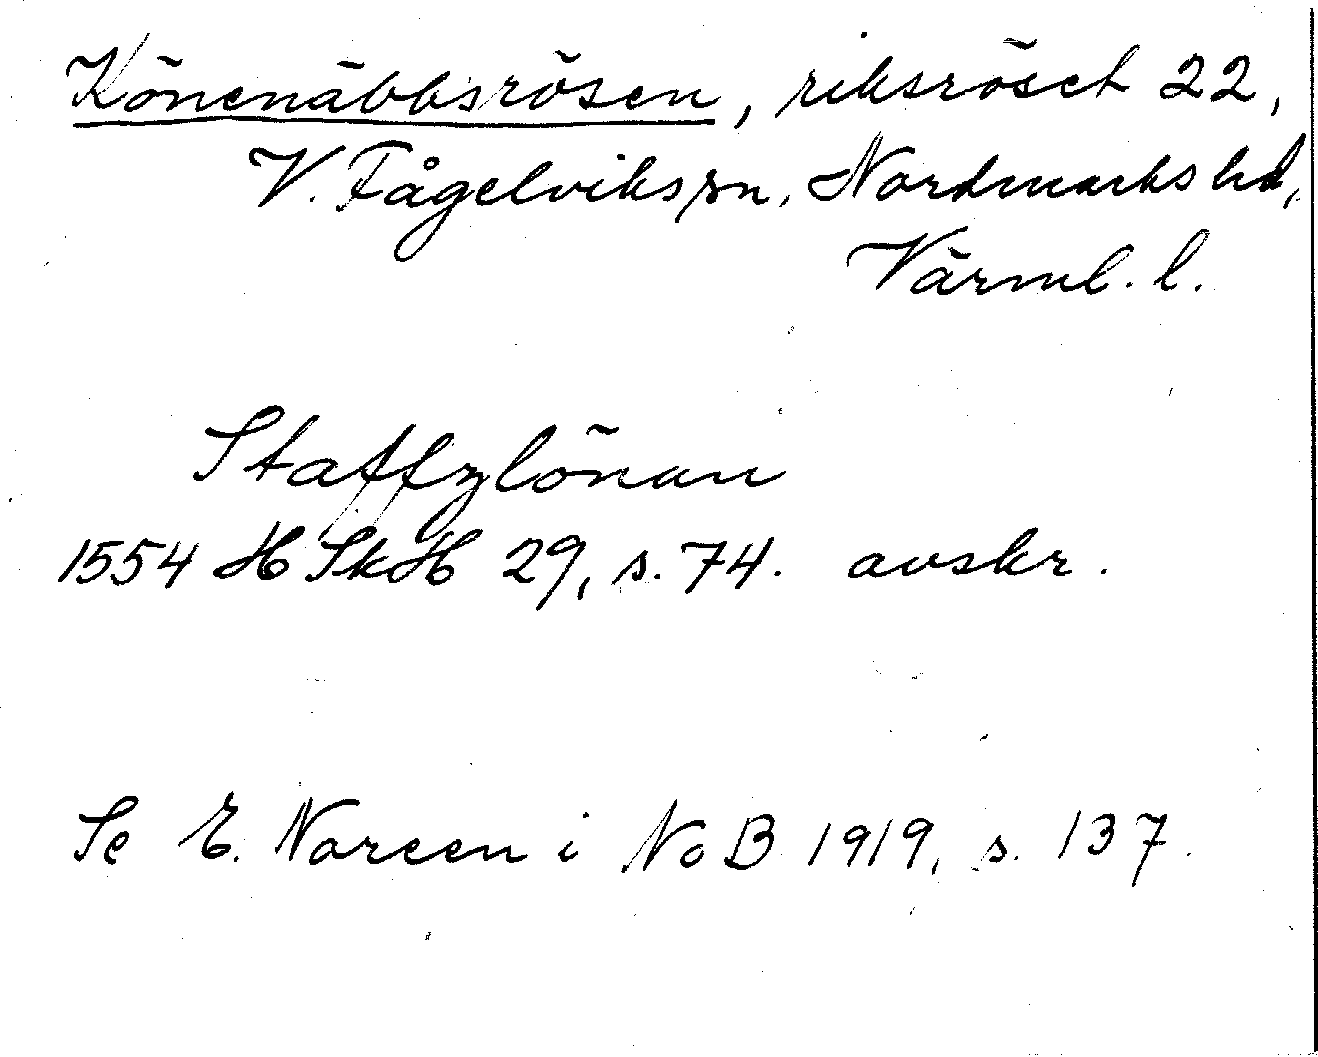 Könenäbbsrösen, riksröset 22,
V. Fågelviks sn, Nordmarks hd,
Värml. l.
Staffzlönan
1554 H Sk H 29, s. 74. avskr.
Se E. Noreen i NoB 1919, s. 137.